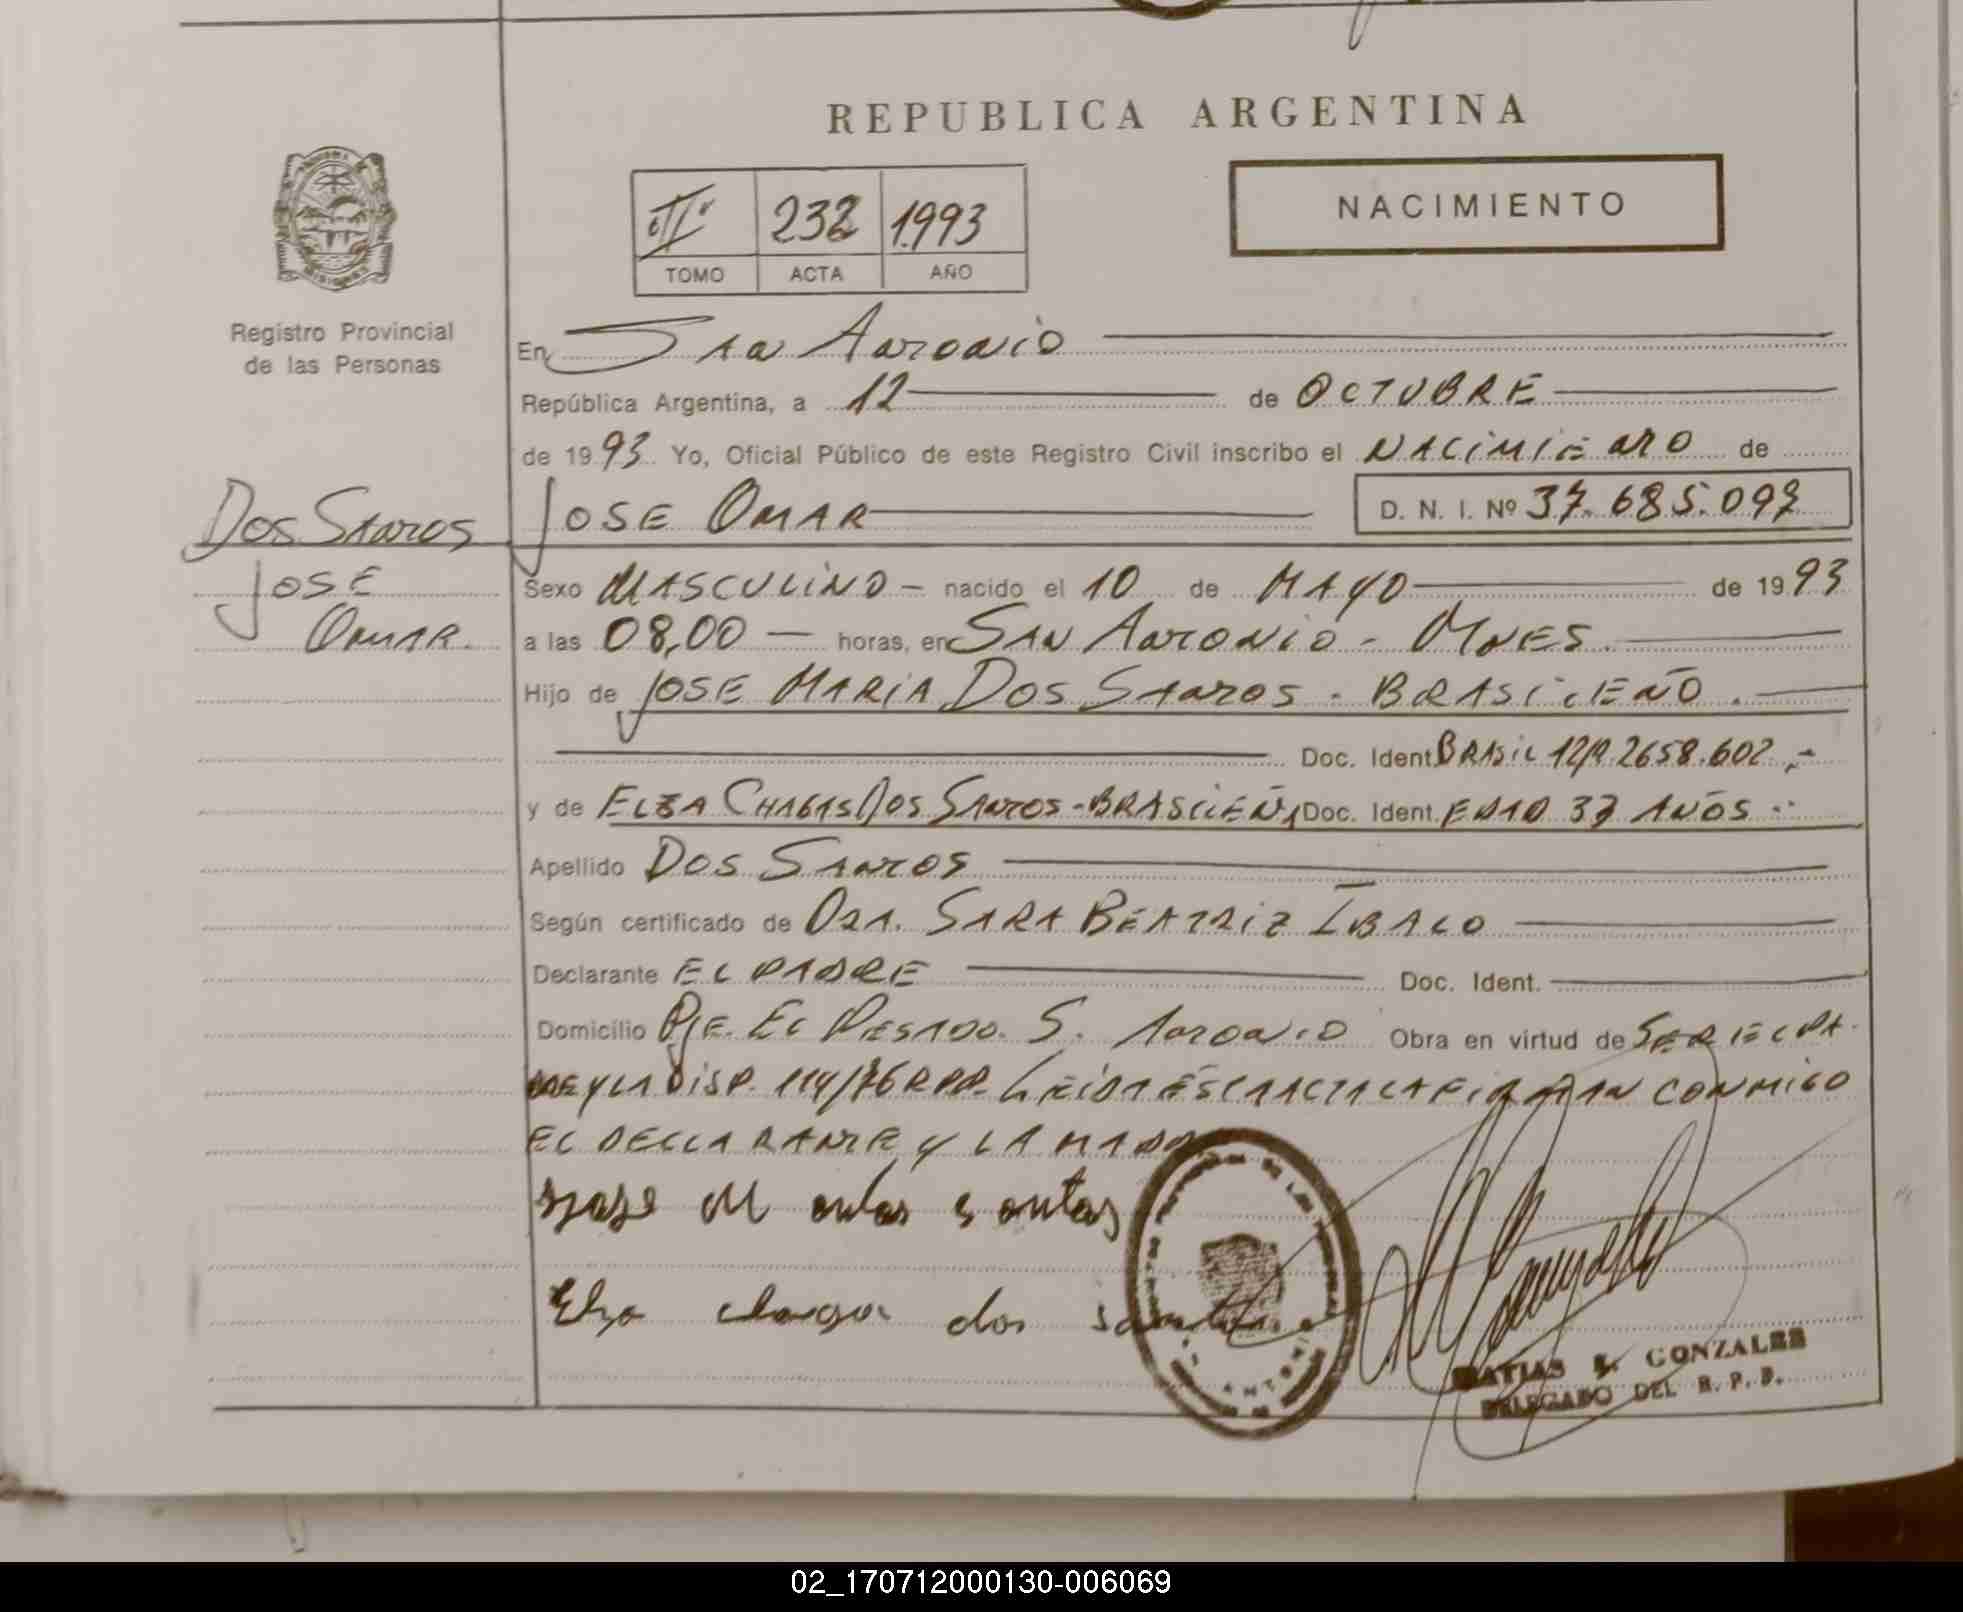 REPUBLICA ARGENTINA
NACIMIENTO
II 232 1993
TOMO ACTA AÑO
Registro Provincial
de las Personas
En San Antonio
República Argentina, a 12 de OCTUBRE
de 1993. Yo, Oficial Público de este Registro Civil inscribo el NACIMIENTO de
JOSE OMAR D. N. I. Nº 37.685.097
DOS SANTOS
JOSE
OMAR.
Sexo MASCULINO - nacido el 10 de MAYO de 1993
a las 08,00 - horas, en SAN ANTONIO - MNES.
Hijo de JOSE MARIA DOS SANTOS - BRASILEÑO.
Doc. Ident. BRASIL 12/R 2658.602.-
y de ELZA CHAGAS DOS SANTOS - BRASILEÑA Doc. Ident. EDAD 37 AÑOS.
Apellido DOS SANTOS
Según certificado de DRA. SARA BEATRIZ IBALO
Declarante EL PADRE Doc. Ident.
Domicilio PJE. EL PESADO. S. ANTONIO Obra en virtud de SER EL PA-
DRE Y LA DISP. 114/76 RPP. LEIDA ESTA ACTA LA FIRMAN CONMIGO
EL DECLARANTE Y LA MADRE
Elza chagas dos santos
MATIAS E. GONZALEZ
DELEGADO DEL R. P. P.
02_170712000130-006069